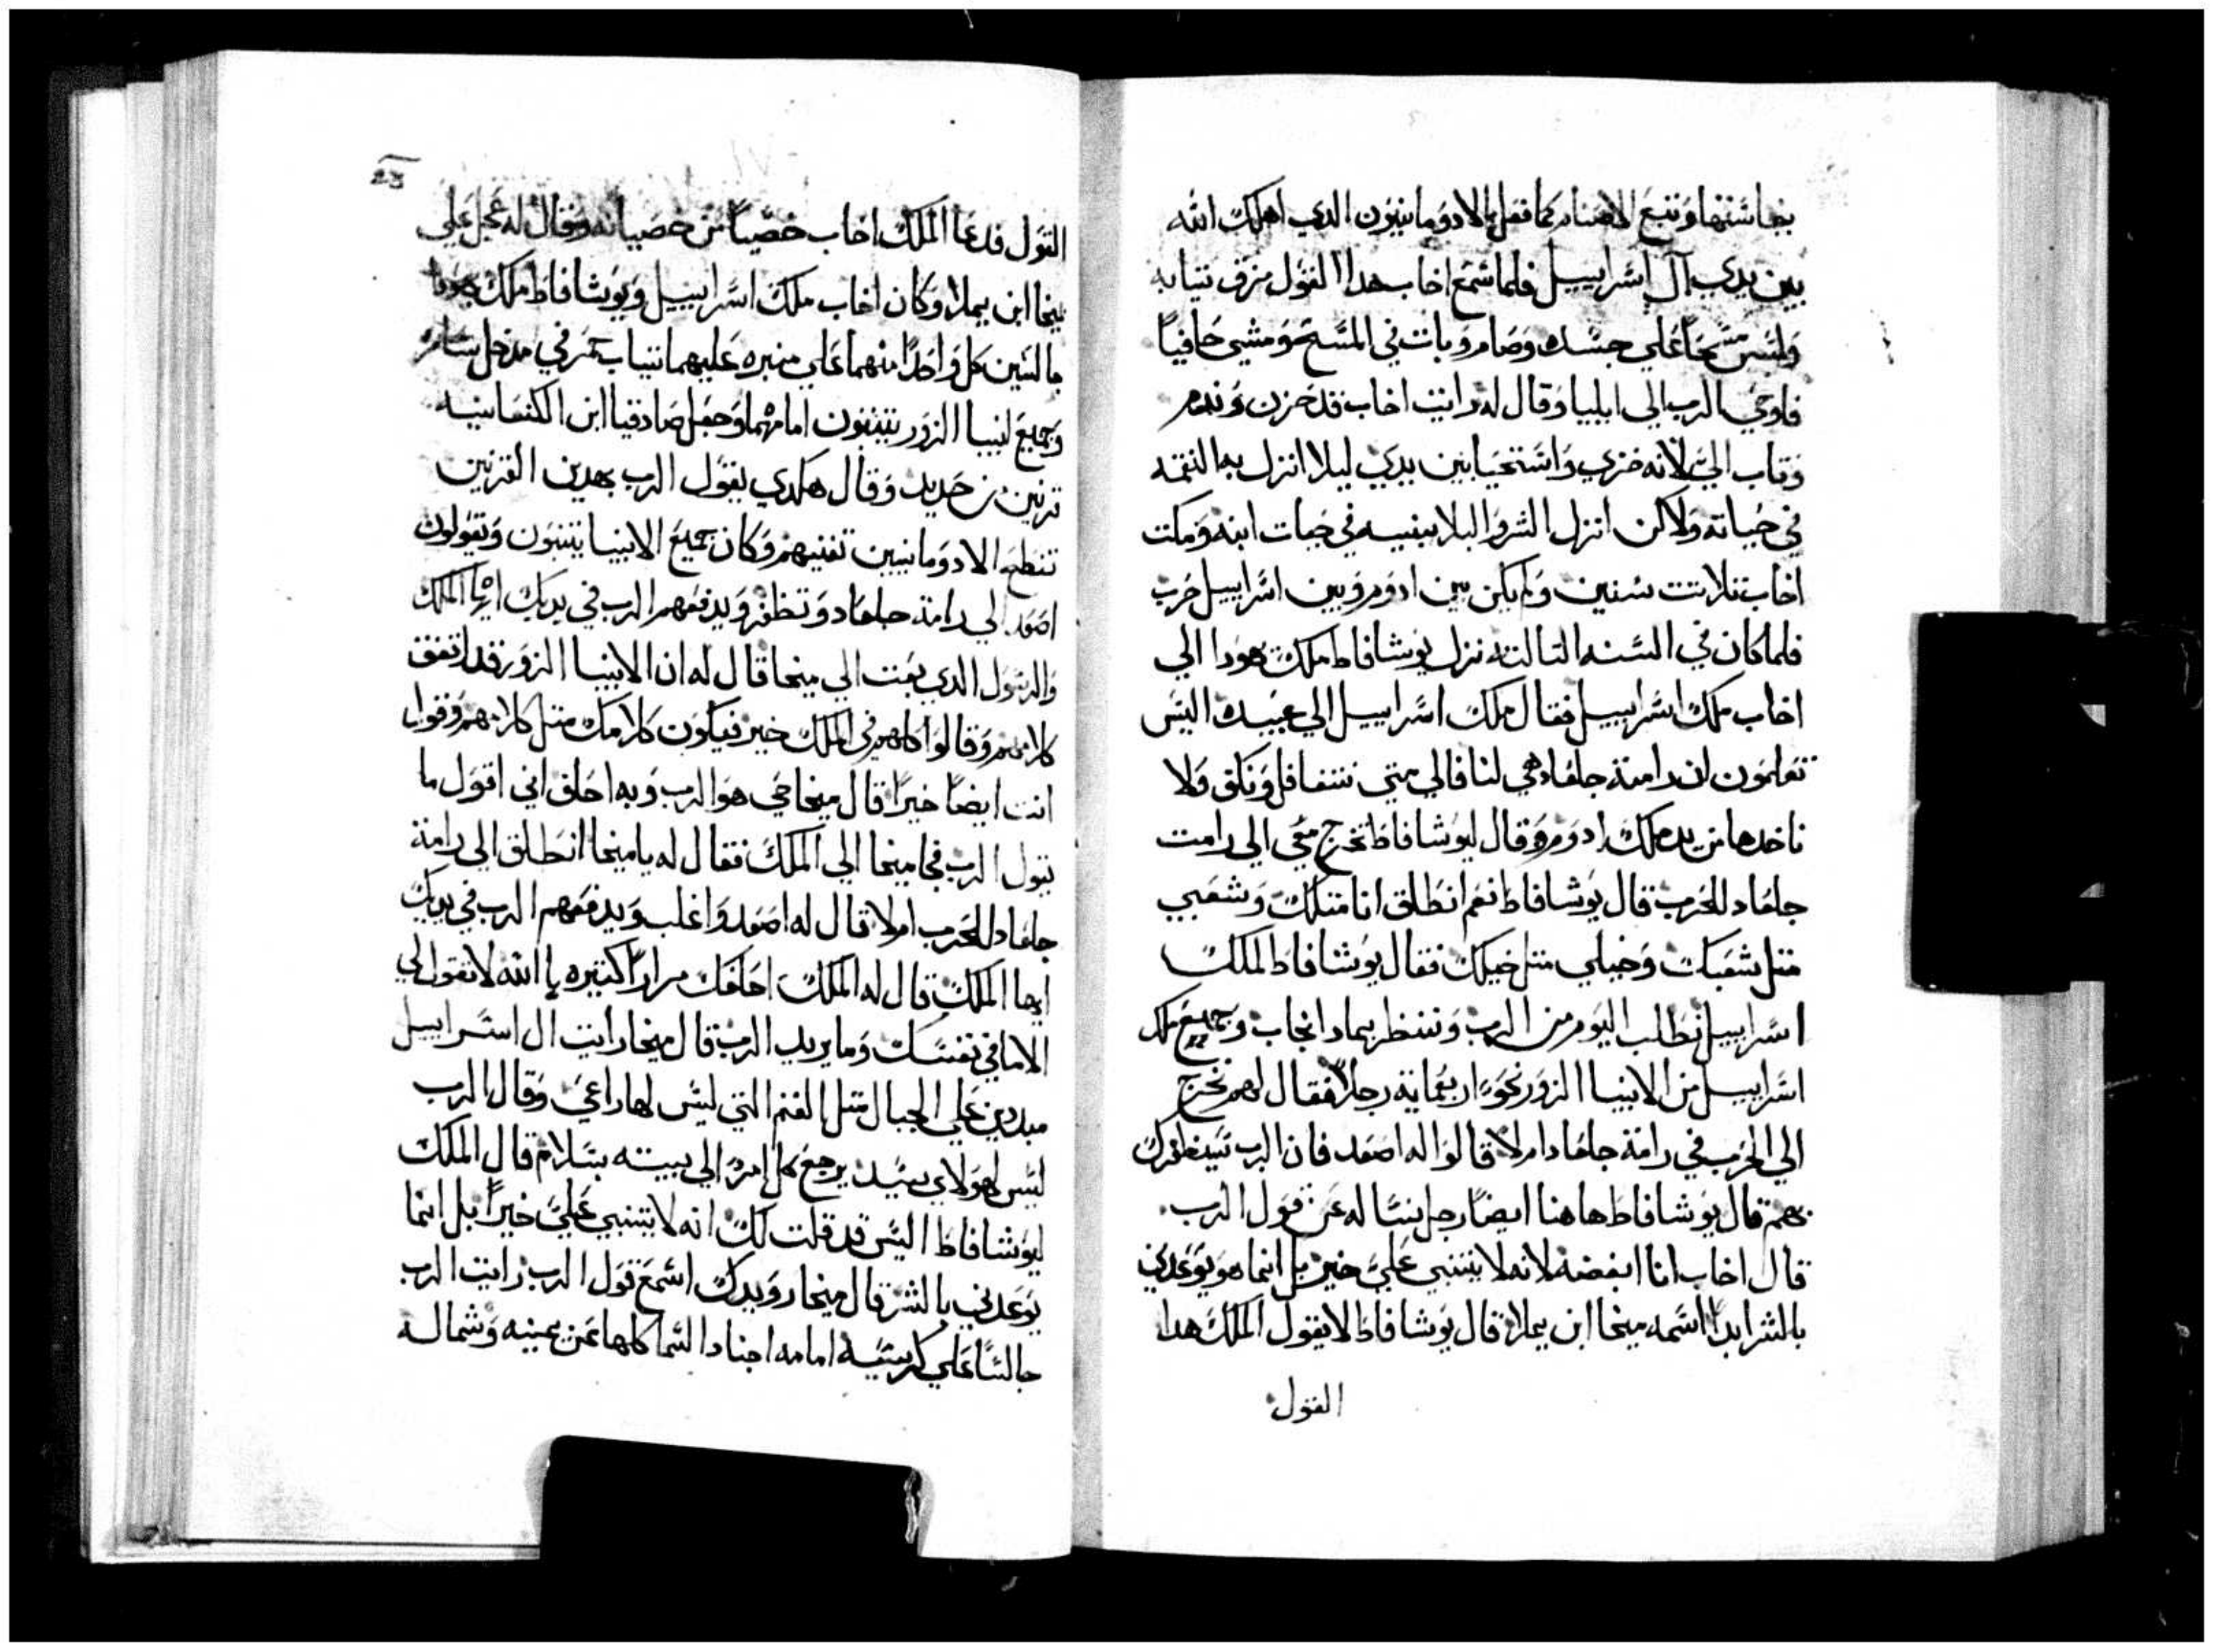 بنجاستها وتتبع الاصنام كما فعل الادومانيون الدي اهلك الله
بين يدي آل اسراييل فلما سمع اخاب هدا القول مزق تيابه
ولبس مسحاً علي جسده وصام وبات في المسح ومشي حافياً
فاوحي الرب الي ايليا وقال له رايت اخاب قد حزن وندم
وتاب اليّ لانه خزي واستحيا بين يدي ليلا انزل به النقمه
في حياته ولاكن انزل الشر والبلا ببنيه في حيات ابنه ومكت
اخاب تلاتت سنين ولم يكن بين ادوم وبين اسراييل حرب
فلما كان في السنه التالته نزل يوشافاط ملك يهودا الي
اخاب ملك اسراييل فقال ملك اسراييل الي عبيده اليس
تعلمون ان رامة جلعاد هي لنا فالي متي نتغافل ونكف ولا
ناخدها من يد ملك ادوم وقال ليوشافاط تخرج معي الي رامت
جلعاد للحرب قال يوشافاط نعم انطلق انا متلك وشعبي
متل شعبك وخيلي متل خيلك فقال يوشافاط لملك
اسراييل نطلب اليوم من الرب وننتظر بمادا نجاب وجميع ملك
اسراييل من الانبيا الزور نحو اربعماية رجلاً فقال لهم نخرج
الي الحرب في رامة جلعاد ام لا قالوا له اصعد فان الرب سيظفرك
بهم قال يوشافاط هاهنا ايضاً رجل نساله عن قول الرب
قال اخاب انا ابغضه لانه لا يتنبي عليّ خير بل انما هو يوعدني
بالشر ابداً اسمه ميخا ابن يملا قال يوشافاط لا يقول الملك هدا
القول
23
القول فدعا الملك اخاب خصياً من خصيانه وقال له عجل علي
ميخا ابن يملا وكان اخاب ملك اسراييل ويوشافاط ملك يهودا
جالسين كل واحداً منهما علي منبره عليهما تياب تمر في مدخل سامره
وجميع انبيا الزور يتنبون امامهما وجعل صادقيا ابن الكنعانيه
قرنين من حديد وقال هكدي يقول الرب بهدين القرنين
تنطح الادومانيين تفنيهم وكان جميع الانبيا يتنبون ويقولون
اصعد الي رامة جلعاد وتظفر ويدفعهم الرب في يديك ايها الملك
والرسول الدي بعت الي ميخا قال له ان الانبيا الزور قد اتفق
كلامهم وقالوا كلهم في الملك خير فيكون كلامك متل كلامهم وقول
انت ايضاً خيراً قال ميخا حي هو الرب وبه احلف اني اقول ما
يقول الرب فجا ميخا الي الملك فقال له يا ميخا انطلق الي رامة
جلعاد للحرب ام لا قال له اصعد واغلب ويدفعهم الرب في يديك
ايها الملك قال له الملك احلفك مراراً كتيره بالله لا تقول لي
الا ما في نفسك وما يريد الرب قال ميخا رايت ال اسراييل
مبددين علي الجبال متل الغنم التي ليس لها راعي وقال الرب
ليس لهولاي سيد يرجع كل امرء الي بيته بسلام قال الملك
ليوشافاط اليس قد قلت لك انه لا يتنبي عليّ خيراً بل انما
يوعدني بالشر قال ميخا رويدك اسمع قول الرب رايت الرب
جالساً علي كرسيه امامه اجناد السما كلها عن يمينه وشماله